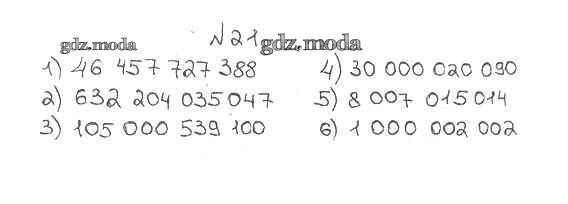 № 21
gdz.moda gdz.moda
1) 46 457 727 388
2) 632 204 035 047
3) 105 000 539 100
4) 30 000 020 090
5) 8 007 015 014
6) 1 000 002 002